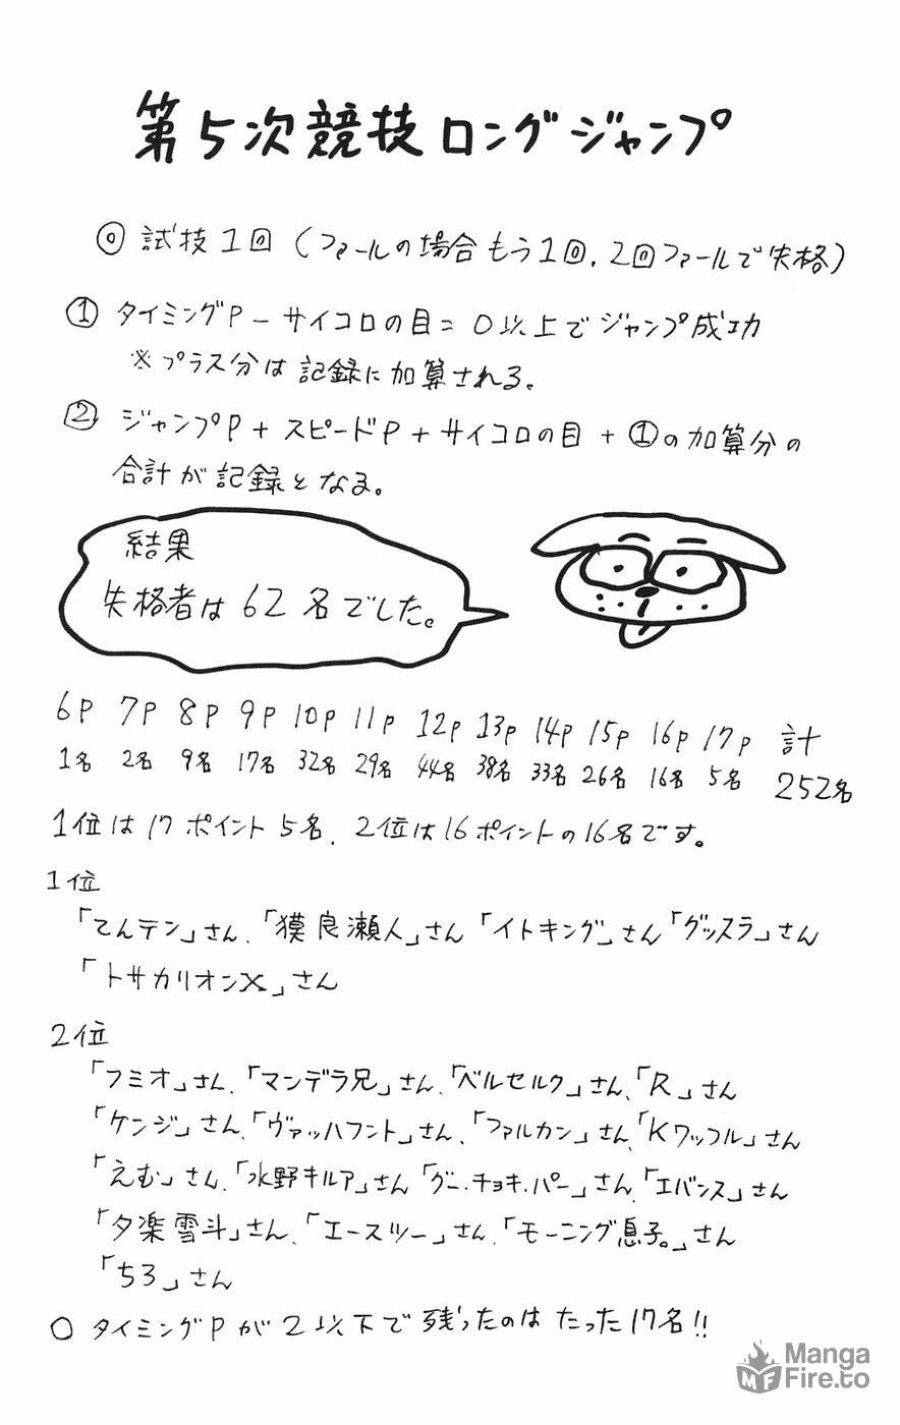 第5次競技ロングジャンプ
◎試技1回(ファールの場合もう1回.2回ファールで失格)
①タイミングP-サイコロの目=0以上でジャンプ成功
※プラス分は記録に加算される。
②ジャンプP+スピードP+サイコロの目+①の加算分の
合計が記録となる。
結果
失格者は62名でした。
6P 7P 8P 9P 10P 11P 12P 13P 14P 15P 16P 17P 計
1名 2名 9名 17名 32名 29名 44名 38名 33名 26名 16名 5名 252名
1位は17ポイント5名.2位は16ポイントの16名です。
1位
「てんテン」さん.「獏良瀬人」さん「イトキング」さん「グッスラ」さん
「トサカリオンX」さん
2位
「フミオ」さん.「マンデラ兄」さん.「ベルセルク」さん.「R」さん
「ケンジ」さん.「ヴァッハフント」さん.「ファルカン」さん.「Kワッフル」さん
「えむ」さん.「水野キルア」さん「グー.チョキ.パー」さん.「エバンス」さん
「夕楽雪斗」さん.「エースツー」さん.「モーニング息子。」さん
「ちろ」さん
○タイミングPが2以下で残ったのはたった17名!!
MF
Manga
Fire.to